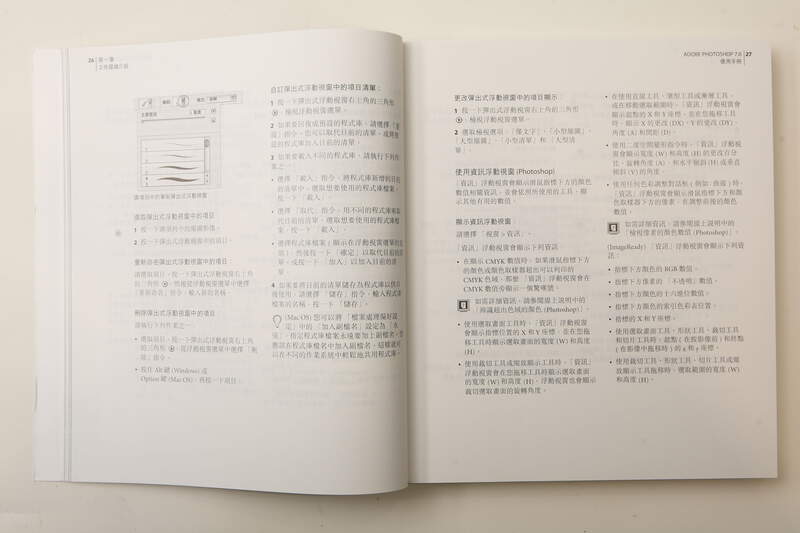 26 第一章
工作環境介紹
選取彈出式浮動視窗中的項目
1 按一下選項列中的縮圖影像。
2 按一下彈出式浮動視窗中的項目。
重新命名彈出式浮動視窗中的項目
請選取項目，按一下彈出式浮動視窗右上角
的三角形，然後從浮動視窗選單中選擇
「重新命名」指令，輸入新的名稱。
刪除彈出式浮動視窗中的項目
請執行下列作業之一：
• 選取項目，按一下彈出式浮動視窗右上角
的三角形，從浮動視窗選單中選擇「刪
除」指令。
• 按住 Alt 鍵 (Windows) 或
Option 鍵 (Mac OS)，再按一下項目。
自訂彈出式浮動視窗中的項目清單：
1 按一下彈出式浮動視窗右上角的三角形
，檢視浮動視窗選單。
2 如果要回復成預設的程式庫，請選擇「重
設」指令。您可以取代目前的清單，或將預
設的程式庫加入目前的清單。
3 如果要載入不同的程式庫，請執行下列作
業之一：
• 選擇「載入」指令，將程式庫新增到目前
的清單中。選取想要使用的程式庫檔案，
按一下「載入」。
• 選擇「取代」指令，用不同的程式庫來取
代目前的清單。選取想要使用的程式庫檔
案，按一下「載入」。
• 選擇程式庫檔案 (顯示在浮動視窗選單的底
部)，然後按一下「確定」以取代目前的清
單，或按一下「加入」以加入目前的清
單。
4 如果要將目前的清單儲存為程式庫以供日
後使用，請選擇「儲存」指令，輸入程式庫
的名稱，按一下「儲存」。
(Mac OS) 您可以將「檔案處理偏好設
定」中的「加入副檔名」設定為「永
遠」，指定程式庫檔案永遠要加上副檔名。您
應該在程式庫檔名中加入副檔名，這樣就可
以在不同的作業系統中輕鬆地共用程式庫。
ADOBE PHOTOSHOP 7.0 27
使用手冊
更改彈出式浮動視窗中的項目顯示：
1 按一下彈出式浮動視窗右上角的三角形
，檢視浮動視窗選單。
2 選取檢視選項：「僅文字」、「小型縮圖」、
「大型縮圖」、「小型清單」和「大型清
單」。
使用資訊浮動視窗 (Photoshop)
「資訊」浮動視窗會顯示滑鼠指標下方的顏色
數值相關資訊，並會依照所使用的工具，顯
示其他有用的數值。
顯示資訊浮動視窗：
請選擇「視窗 > 資訊」。
「資訊」浮動視窗會顯示下列資訊：
• 在顯示 CMYK 數值時，如果滑鼠指標下方
的顏色或顏色取樣器超出可以列印的
CMYK 色域，那麼「資訊」浮動視窗會在
CMYK 數值旁顯示一個驚嘆號。
如需詳細資訊，請參閱線上說明中的
「辨識超出色域的顏色 (Photoshop)」。
• 使用選取畫面工具時，「資訊」浮動視窗
會顯示指標位置的 X 和 Y 座標，並在您拖
移工具時顯示選取畫面的寬度 (W) 和高度
(H)。
• 使用裁切工具或縮放顯示工具時，「資訊」
浮動視窗會在您拖移工具時顯示選取畫面
的寬度 (W) 和高度 (H)。浮動視窗也會顯示
裁切選取畫面的旋轉角度。
• 在使用直線工具、筆型工具或漸層工具，
或在移動選取範圍時，「資訊」浮動視窗會
顯示起點的 X 和 Y 座標，並在您拖移工具
時，顯示 X 的更改 (DX)、Y 的更改 (DY)、
角度 (A) 和間距 (D)。
• 使用二度空間變形指令時，「資訊」浮動視
窗會顯示寬度 (W) 和高度 (H) 的更改百分
比、旋轉角度 (A)，和水平傾斜 (H) 或垂直
傾斜 (V) 的角度。
• 使用任何色彩調整對話框 (例如：曲線) 時，
「資訊」浮動視窗會顯示滑鼠指標下方和顏
色取樣器下方的像素，在調整前後的顏色
數值。
如需詳細資訊，請參閱線上說明中的
「檢視像素的顏色數值 (Photoshop)」。
(ImageReady)「資訊」浮動視窗會顯示下列資
訊：
• 指標下方顏色的 RGB 數值。
• 指標下方像素的「不透明」數值。
• 指標下方顏色的十六進位數值。
• 指標下方顏色的索引色彩表位置。
• 指標的 X 和 Y 座標。
• 使用選取畫面工具、形狀工具、裁切工具
和切片工具時，起點 (在按影像前) 和終點
(在影像中拖移時) 的 x 和 y 座標。
• 使用裁切工具、形狀工具、切片工具或縮
放顯示工具拖移時，選取範圍的寬度 (W)
和高度 (H)。